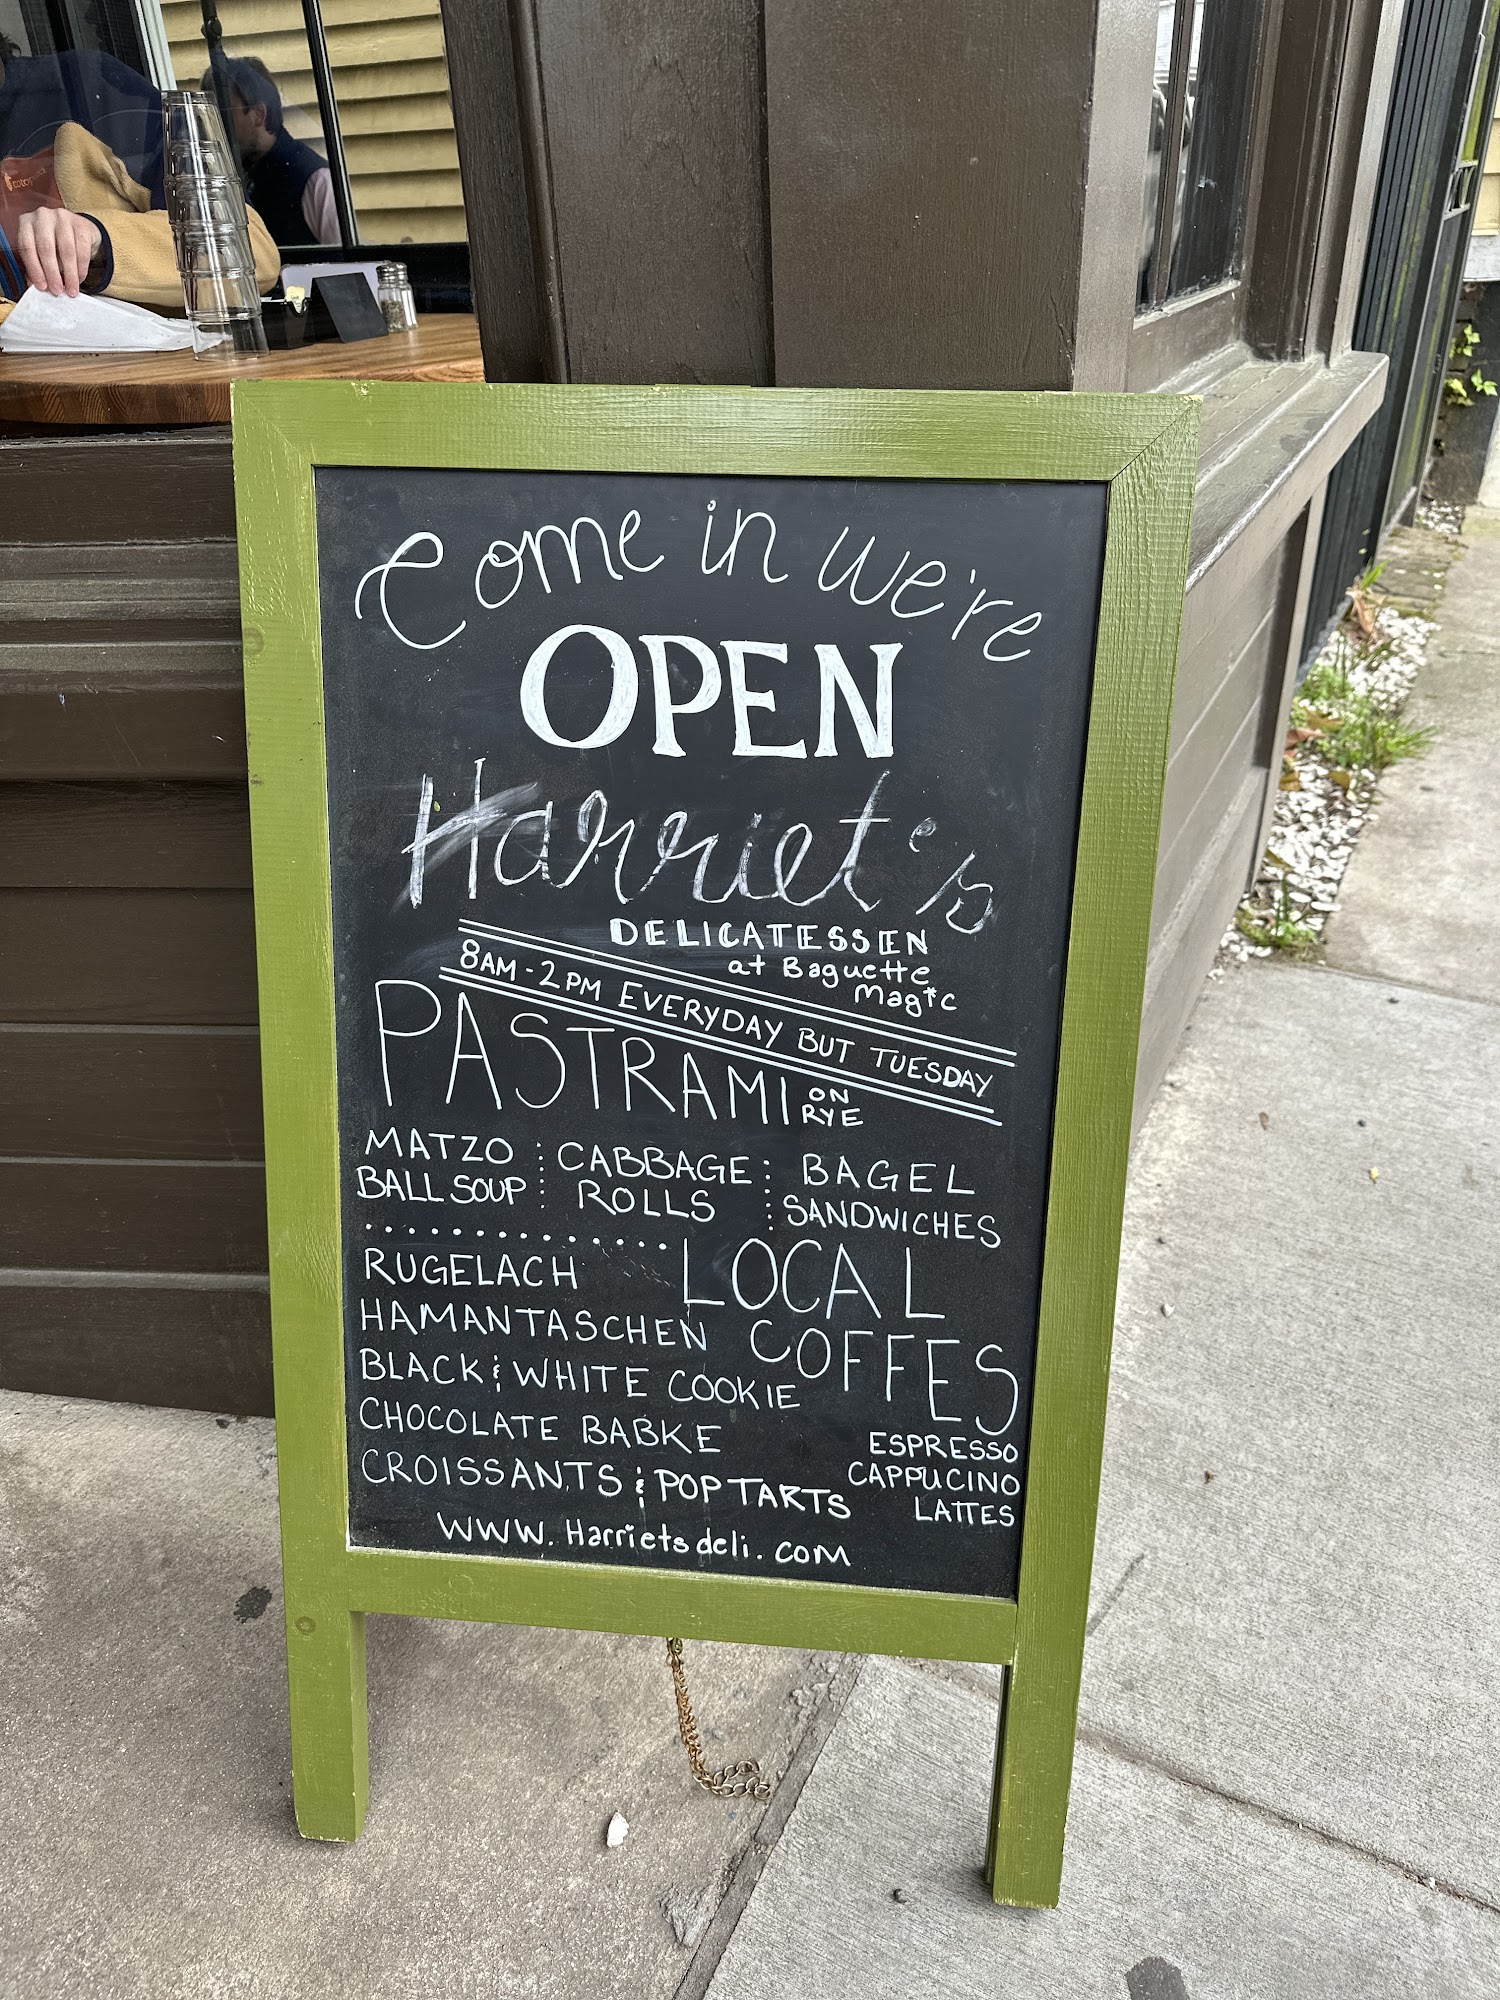 Come in we're
OPEN
Harriet's
DELICATESSEN
at Baguette
Magic
8AM - 2PM EVERYDAY BUT TUESDAY
PASTRAMI ON
RYE
MATZO
BALL SOUP
CABBAGE
ROLLS
BAGEL
SANDWICHES
RUGELACH
HAMANTASCHEN
BLACK & WHITE COOKIE
CHOCOLATE BABKE
CROISSANTS & POP TARTS
LOCAL
COFFES
ESPRESSO
CAPPUCINO
LATTES
WWW.Harrietsdeli.com